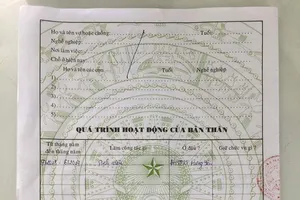 Họ và tên vợ hoặc chồng: Tuổi:
Nghề nghiệp:
Nơi làm việc:
Chỗ ở hiện nay:
Họ và tên các con: Tuổi: Nghề nghiệp:
1)
2)
3)
4)
5)
QUÁ TRÌNH HOẠT ĐỘNG CỦA BẢN THÂN
Từ tháng năm đến tháng năm Làm công tác gì Ở đâu? Giữ chức vụ gì?
Hưng Yên